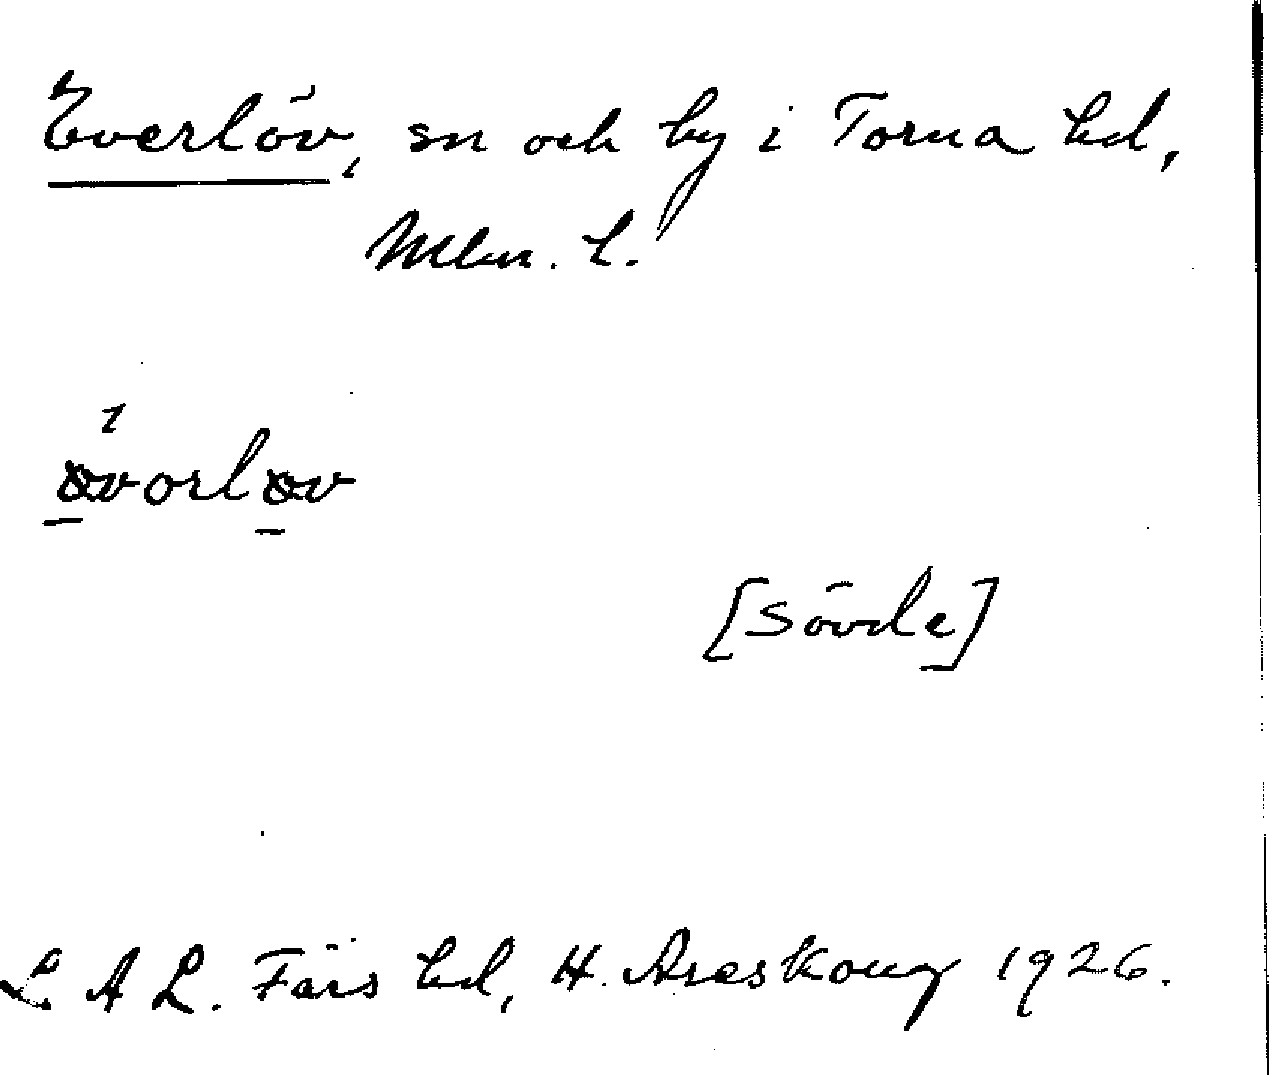 Everlöv, sn och by i Torna hd,
Mlm. l.
1
øvorløv
[Sövde]
L A L. Färs hd, H. Areskoug 1926.